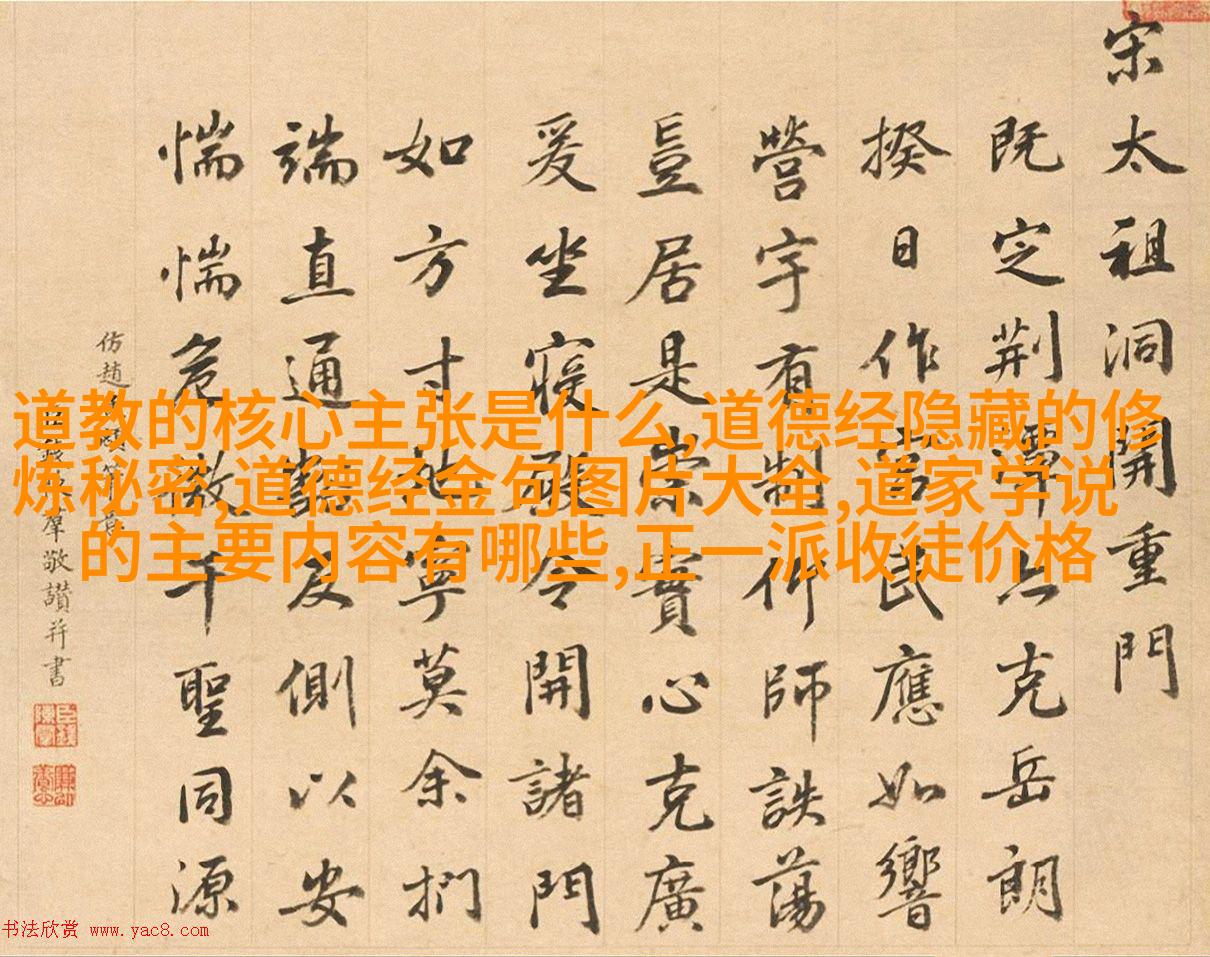 宋太祖洞開重門
既定荆潭克岳朗
揆日作宮民應如響
營宇有制仰師詄蕩
豈居是崇實心克廣
爰坐寢殿令開諸門
如方寸地寧莫余捫
端直通及側以安
惴惴危微千聖同源
仿趙
敬讚并書
道教的核心主张是什么,道德经隐藏的修
炼秘密,道德经金句图片大全,道家学说
的主要内容有哪些,正一派收徒价格
书法欣赏 www.yac8.com